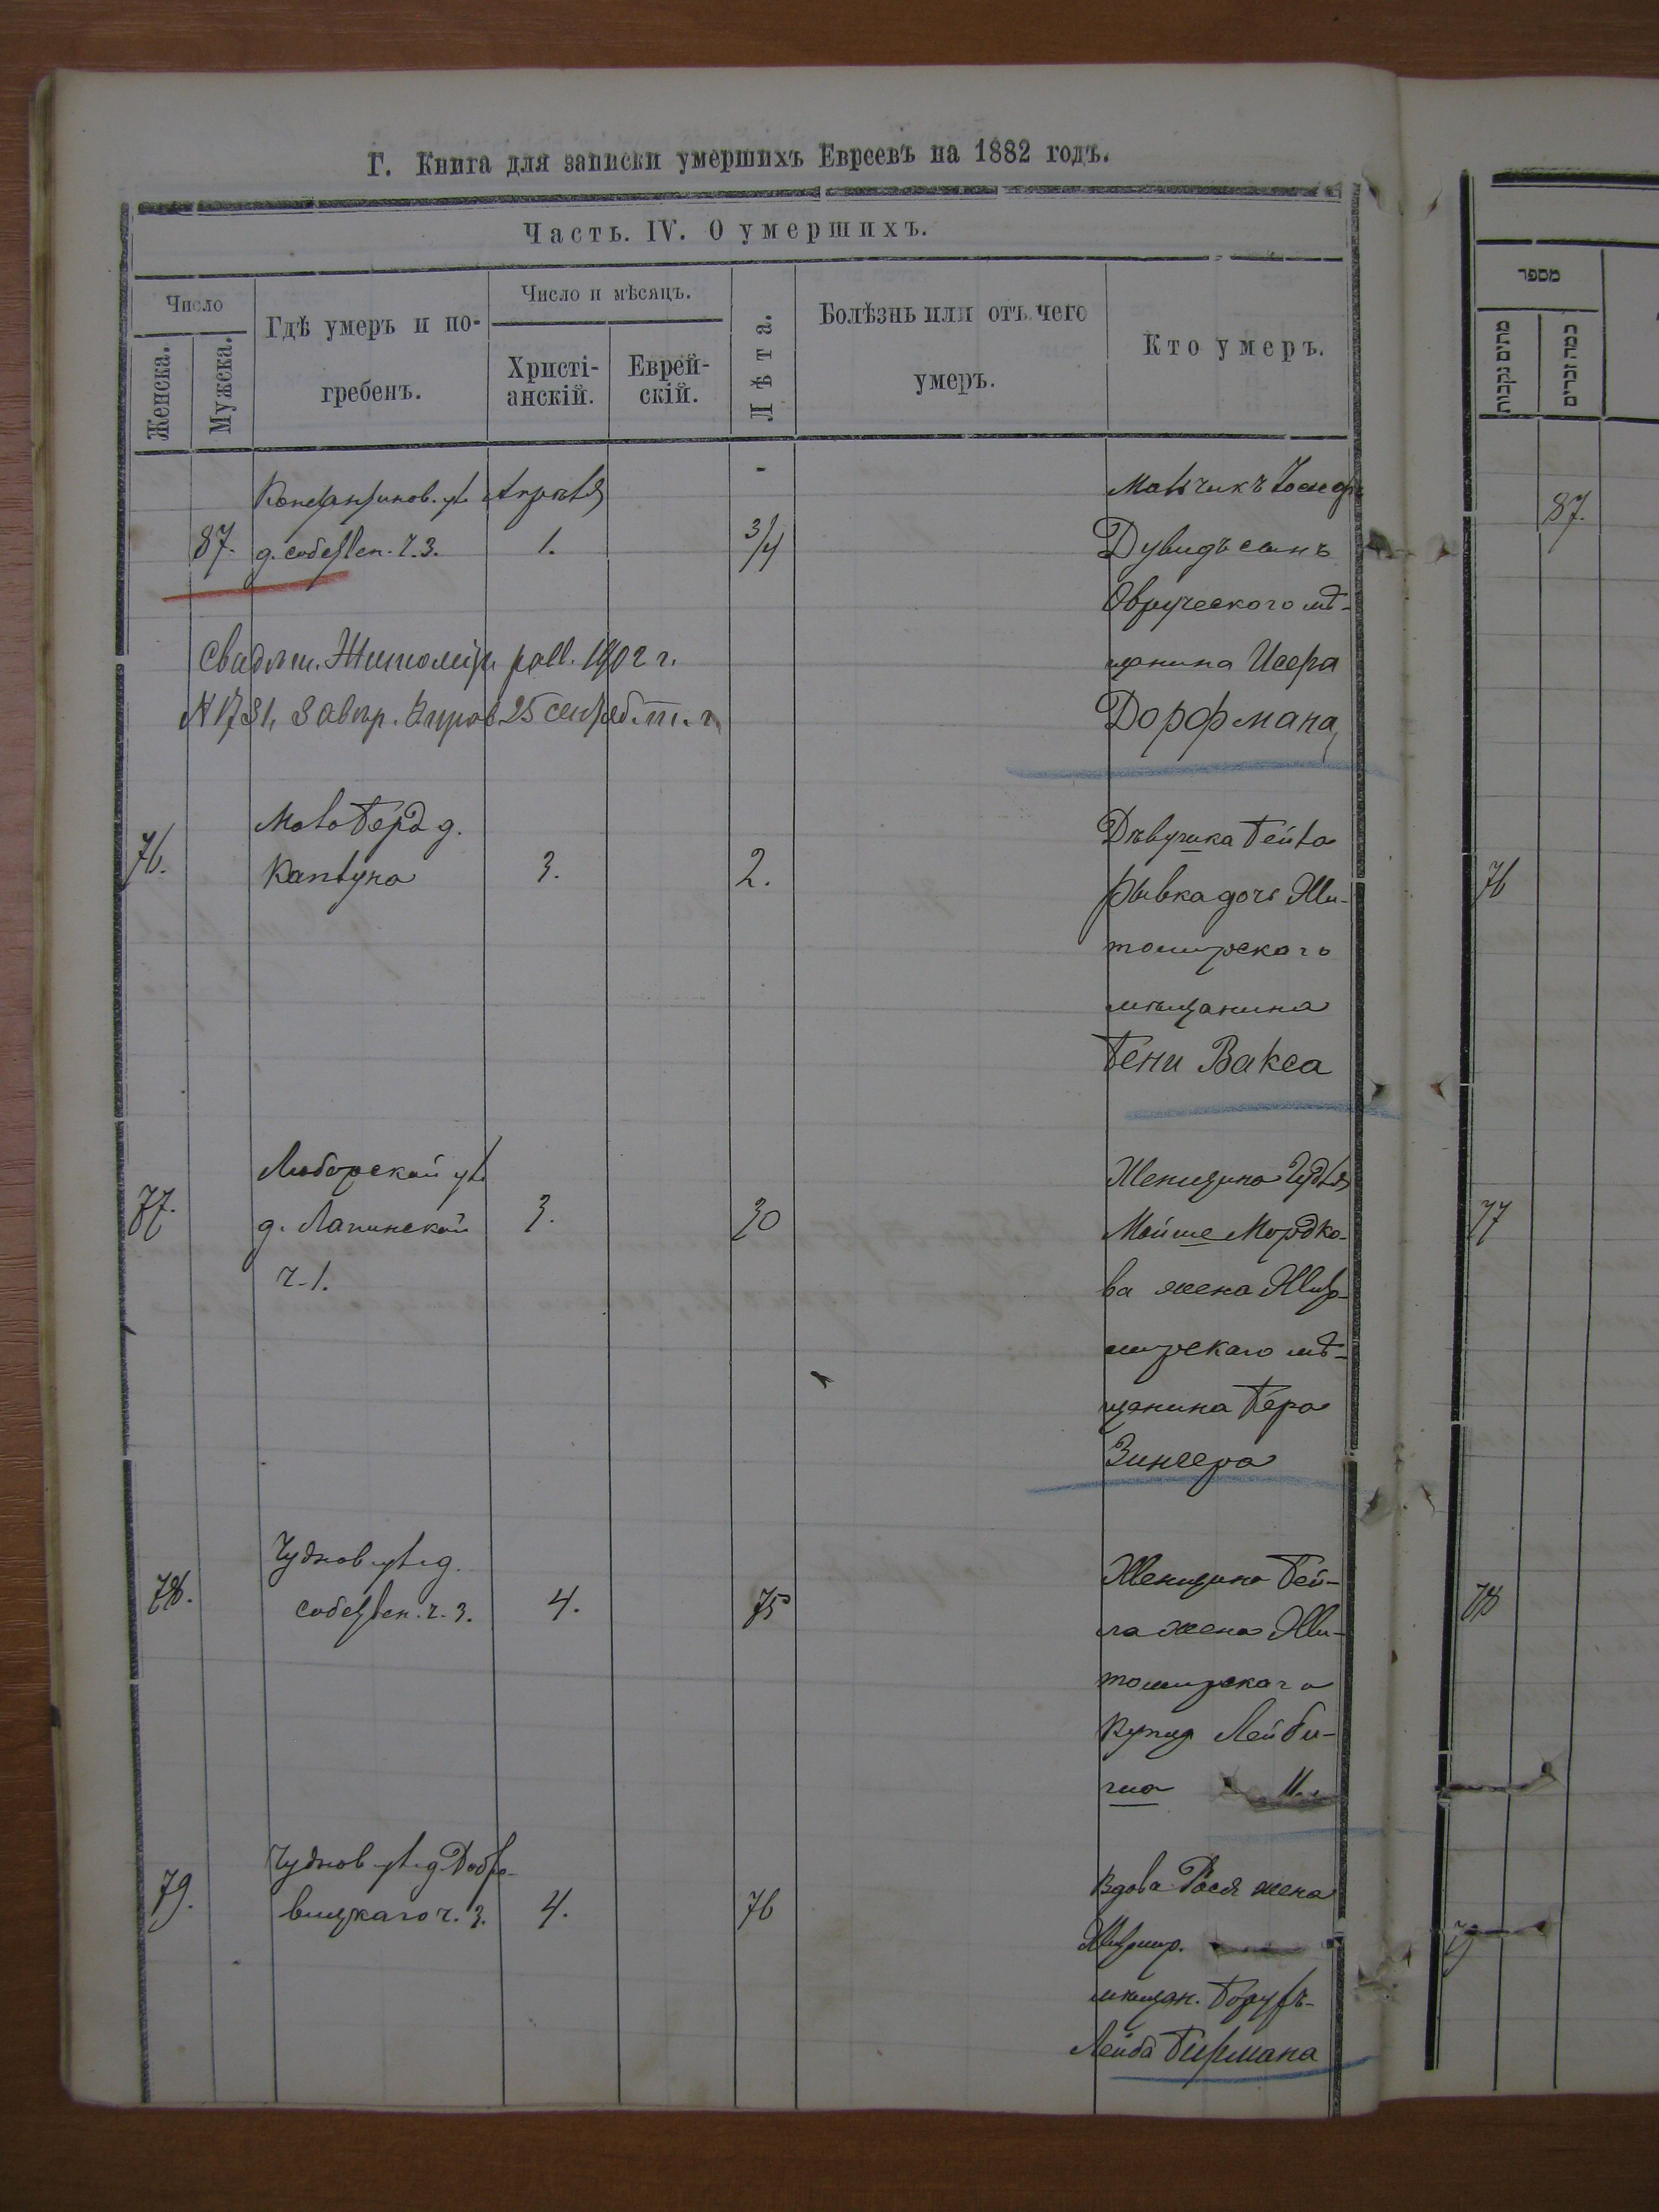 Г. Книга для записки умершихъ Евреевъ на 1882 годъ.
Часть. IV. О умершихъ.
Число
Женска.
Мужска.
Гдѣ умеръ и по-
гребенъ.
Число и мѣсяцъ.
Христі-
анскій.
Еврей-
скій.
Лѣта.
Болѣзнь или отъ чего
умеръ.
Кто умеръ.
מספר
87.
д. собствен. ч. 3.
Апрѣля
1.
3/4
Мальчикъ
Дувидъ сынъ
Овручского мѣ-
щанина Исера
Дорфмана
Житомір. 1902 г.
25 сентяб. т. г.
76.
д.
Каплуна
3.
2.
Дѣвушка Бейла
Рывка дочь Жи-
томирского
мѣщанина
Бени Вакса
77.
Любарской ул
д. Лапинской
ч. 1.
3.
30
Женщина
Мойше Мордко-
ва жена Жит-
мирскаго мѣ-
щанина Бера
Зингера
78.
Чуднов ул д.
собствен. ч. 3.
4.
75
Женщина Бей-
ла жена Жи-
томирского
купца Лейби-
79.
Чуднов ул д
ч. 3.
4.
76
Вдова Рося жена
Житмир.
мѣщан. Борухъ-
Лейба
87.
76
77
78